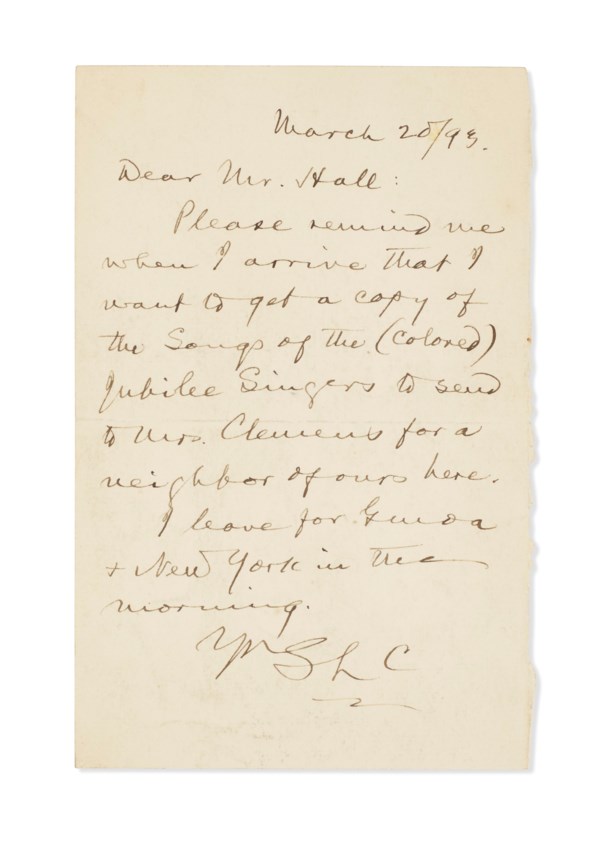 March 20/93.
Dear Mr. Hall:
Please remind me
when I arrive that I
want to get a copy of
the Songs of the (colored)
Jubilee Singers to send
to Mrs. Clemens for a
neighbor of ours here.
I leave for Genoa
+ New York in the
morning.
Yrs SLC